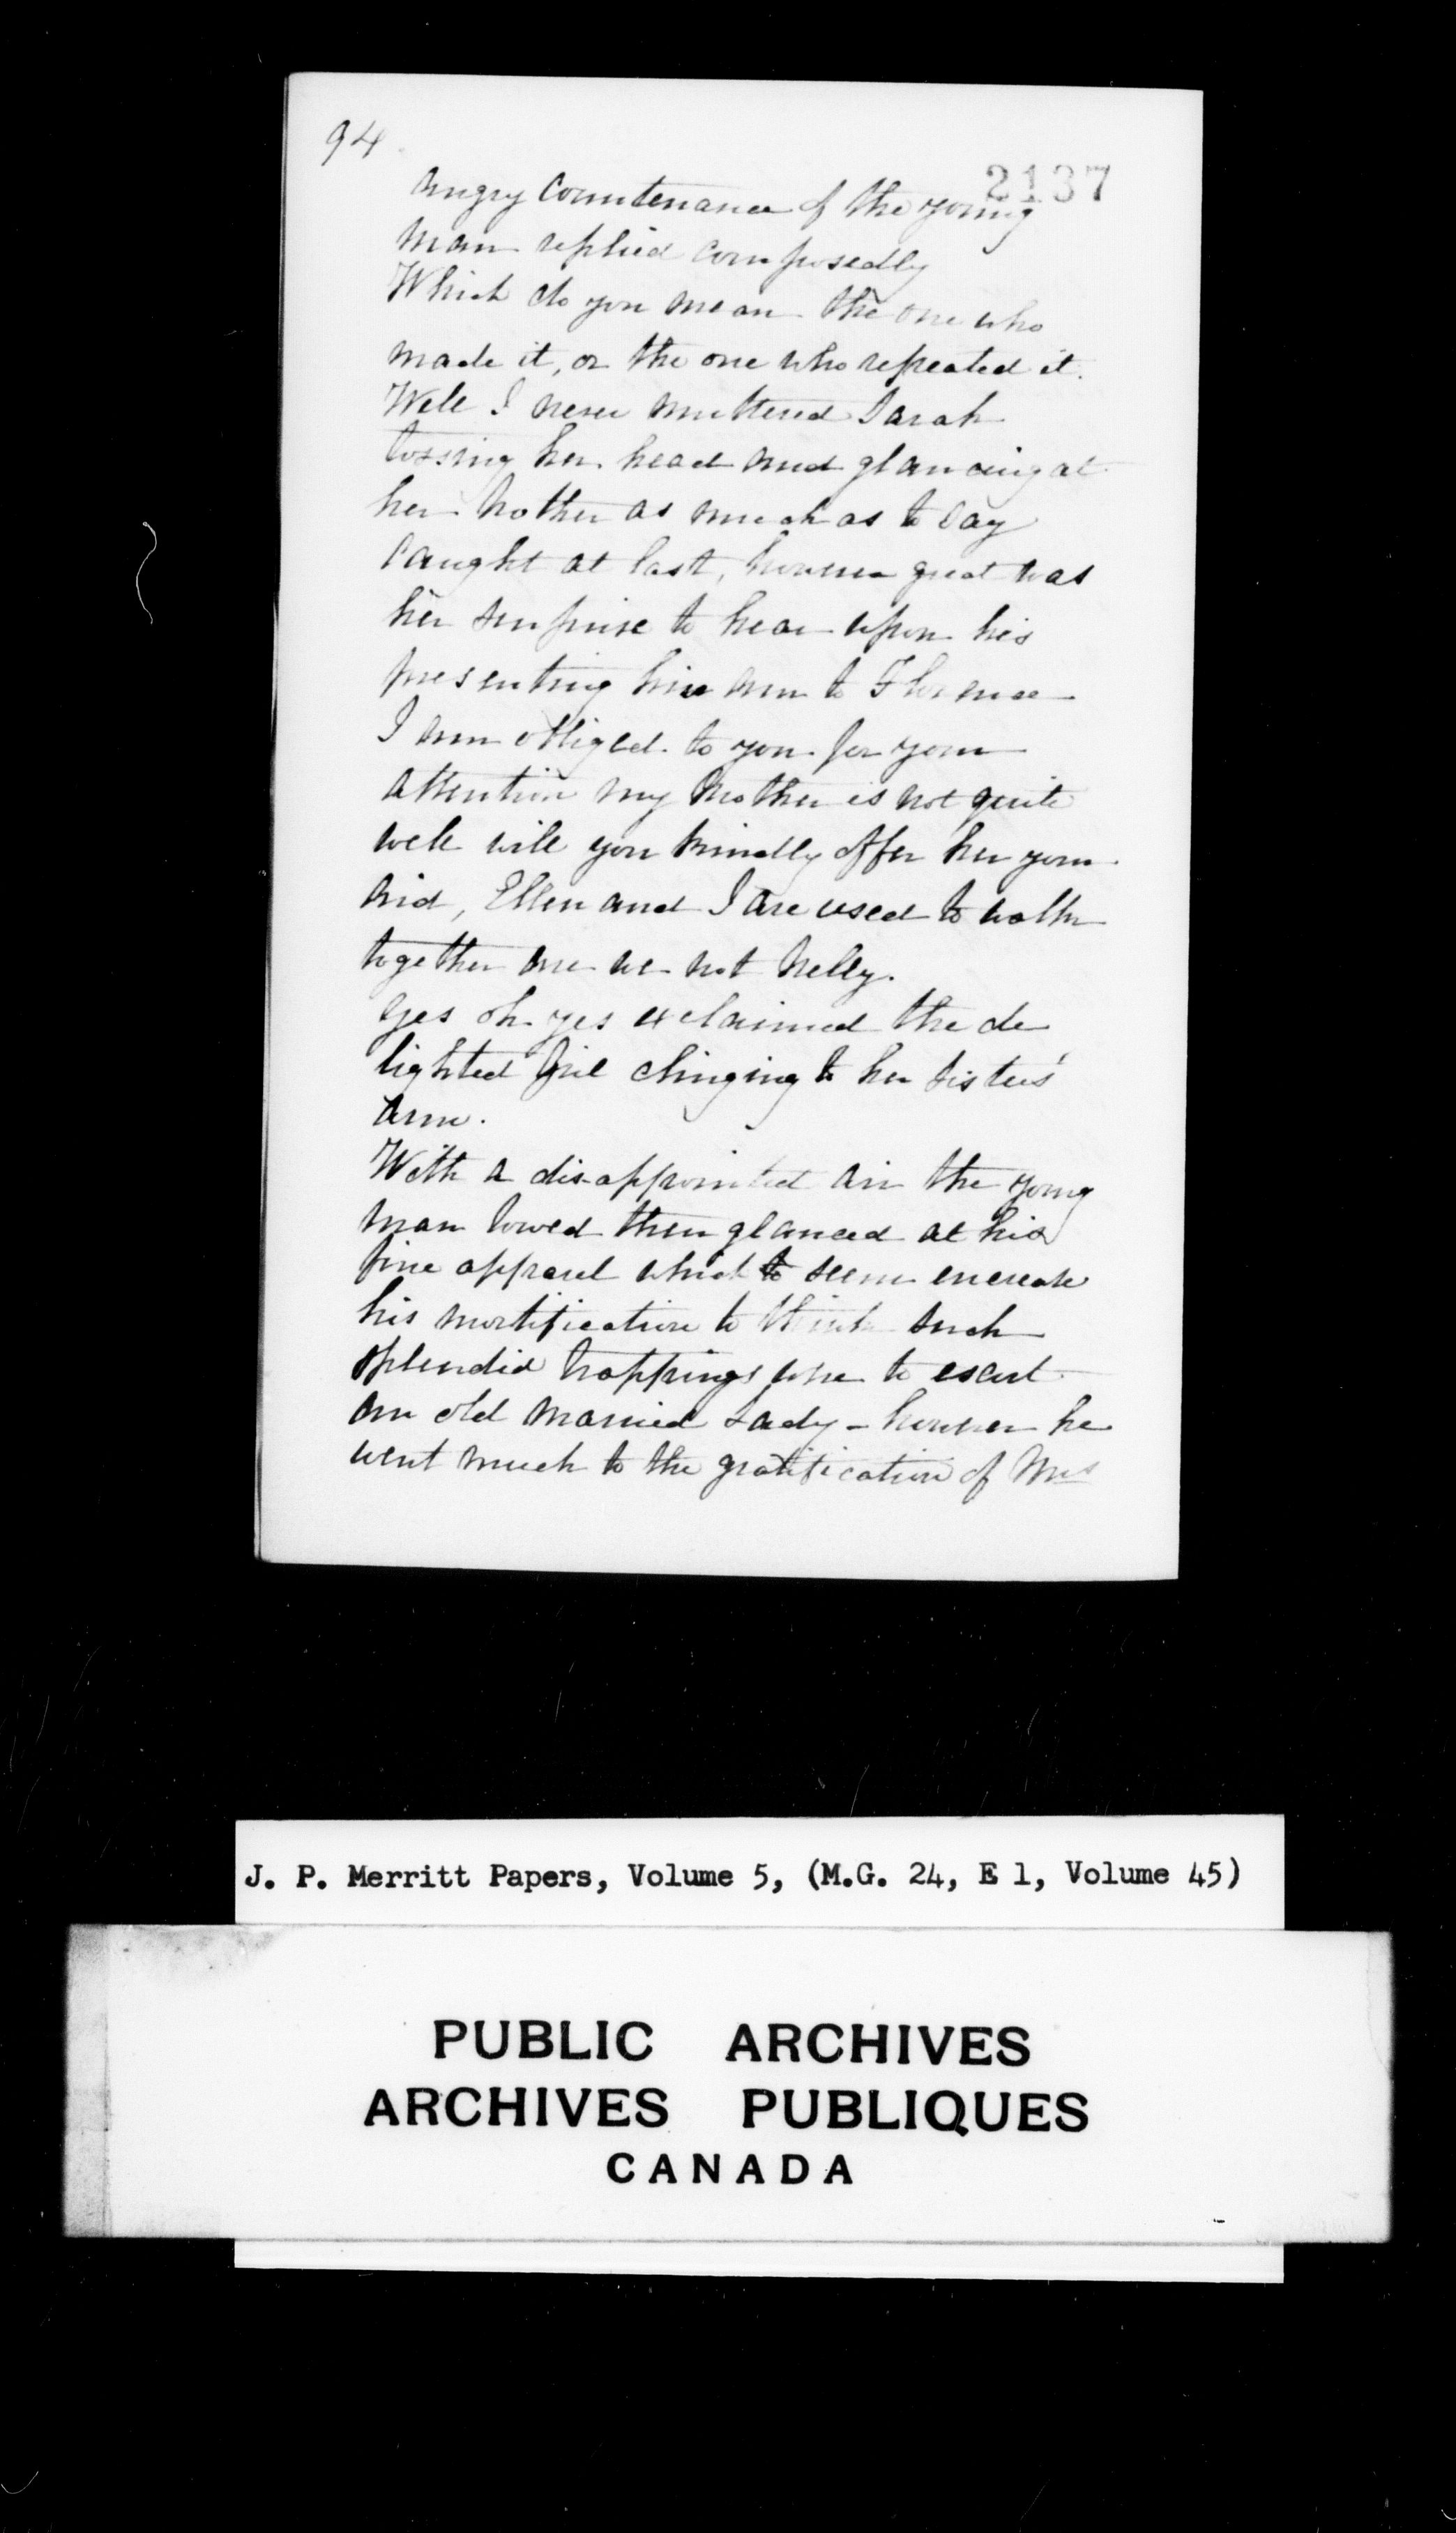 94
2137
angry countenance of the young
man replied composedly
Which do you mean the one who
made it, or the one who repeated it.
Well I never muttered Sarah
tossing her head and glancing at
her mother as much as to say
caught at last, however great was
her surprise to hear upon his
presenting his arm to Florence
I am obliged to you for your
attention my mother is not quite
well will you kindly offer her your
aid, Ellen and I are used to walk
together are we not Nelly.
Yes oh yes exclaimed the de
lighted girl clinging to her sisters'
arm.
With a disappointed air the young
man bowed then glanced at his
fine apparel which to seem encrease
his mortification to think such
splendid trappings were to escort
an old married Lady - however he
went much to the gratification of Mrs
J. P. Merritt Papers, Volume 5, (M.G. 24, E 1, Volume 45)
PUBLIC ARCHIVES
ARCHIVES PUBLIQUES
CANADA